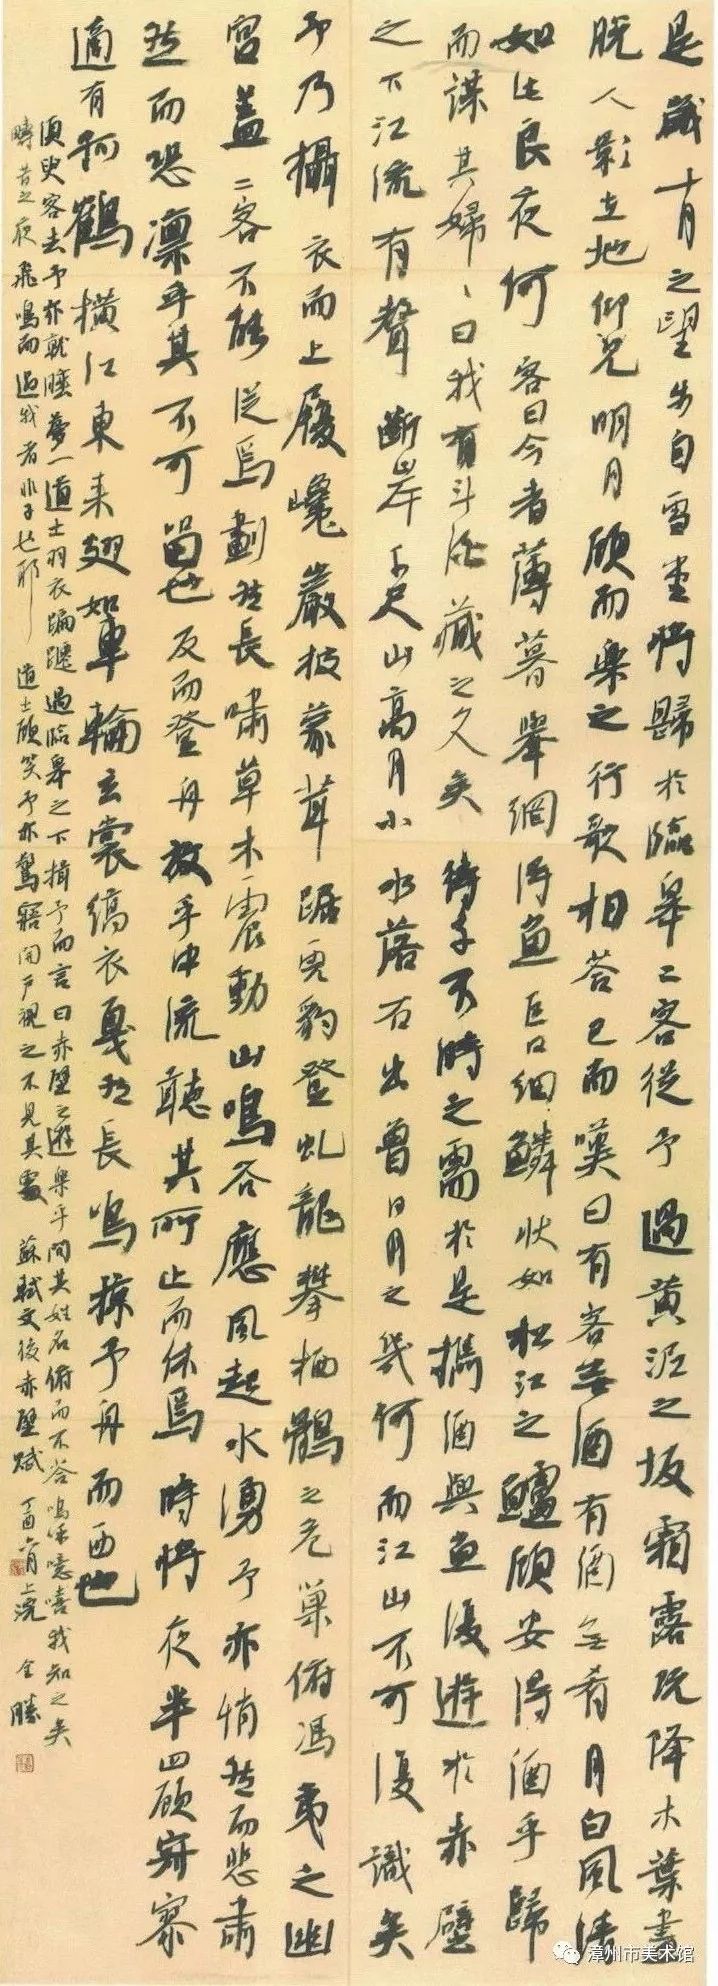 是歲十月之望步自雪堂將歸於臨皋二客從予過黃泥之坂霜露既降木葉盡
脫人影在地仰見明月顧而樂之行歌相答已而嘆曰有客無酒有酒無肴月白風清
如此良夜何客曰今者薄暮舉網得魚巨口細鱗狀如松江之鱸顧安得酒乎歸
而謀其婦〻曰我有斗酒藏之久矣待子不時之需於是攜酒與魚復遊於赤壁
之下江流有聲斷岸千尺山高月小水落石出曾日月之幾何而江山不可復識矣
予乃攝衣而上履巉巖披蒙茸踞虎豹登虬龍攀栖鶻之危巢俯馮夷之幽
宮蓋二客不能從焉劃然長嘯草木震動山鳴谷應風起水湧予亦悄然而悲肅
然而恐凜乎其不可留也反而登舟放乎中流聽其所止而休焉時將夜半四顧寂寥
適有孤鶴橫江東來翅如車輪玄裳縞衣戛然長鳴掠予舟而西也
須臾客去予亦就睡夢一道士羽衣蹁躚過臨皋之下揖予而言曰赤壁之遊樂乎問其姓名俯而不答嗚呼噫嘻我知之矣
疇昔之夜飛鳴而過我者非子也耶道士顧笑予亦驚寤開戶視之不見其處 蘇軾文後赤壁賦 丁酉六月上浣 全勝
漳州市美术馆